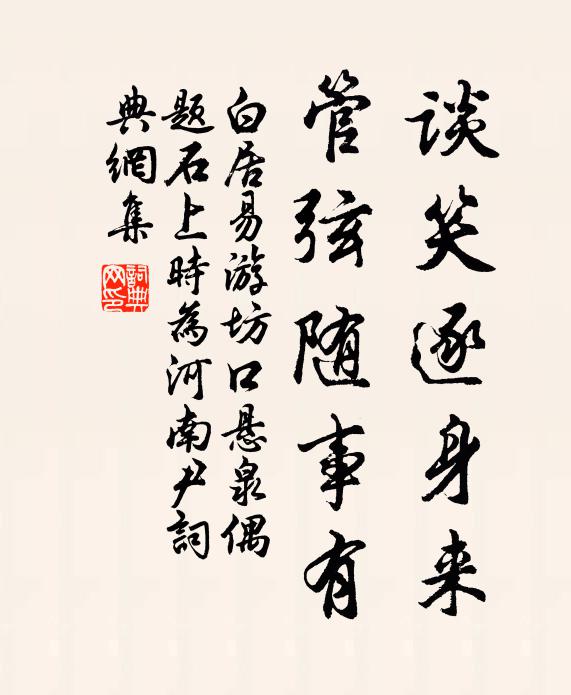 谈笑逐身来
管弦随事有
白居易游坊口悬泉偶
题石上時為河南尹詞
典網集
詞典网印